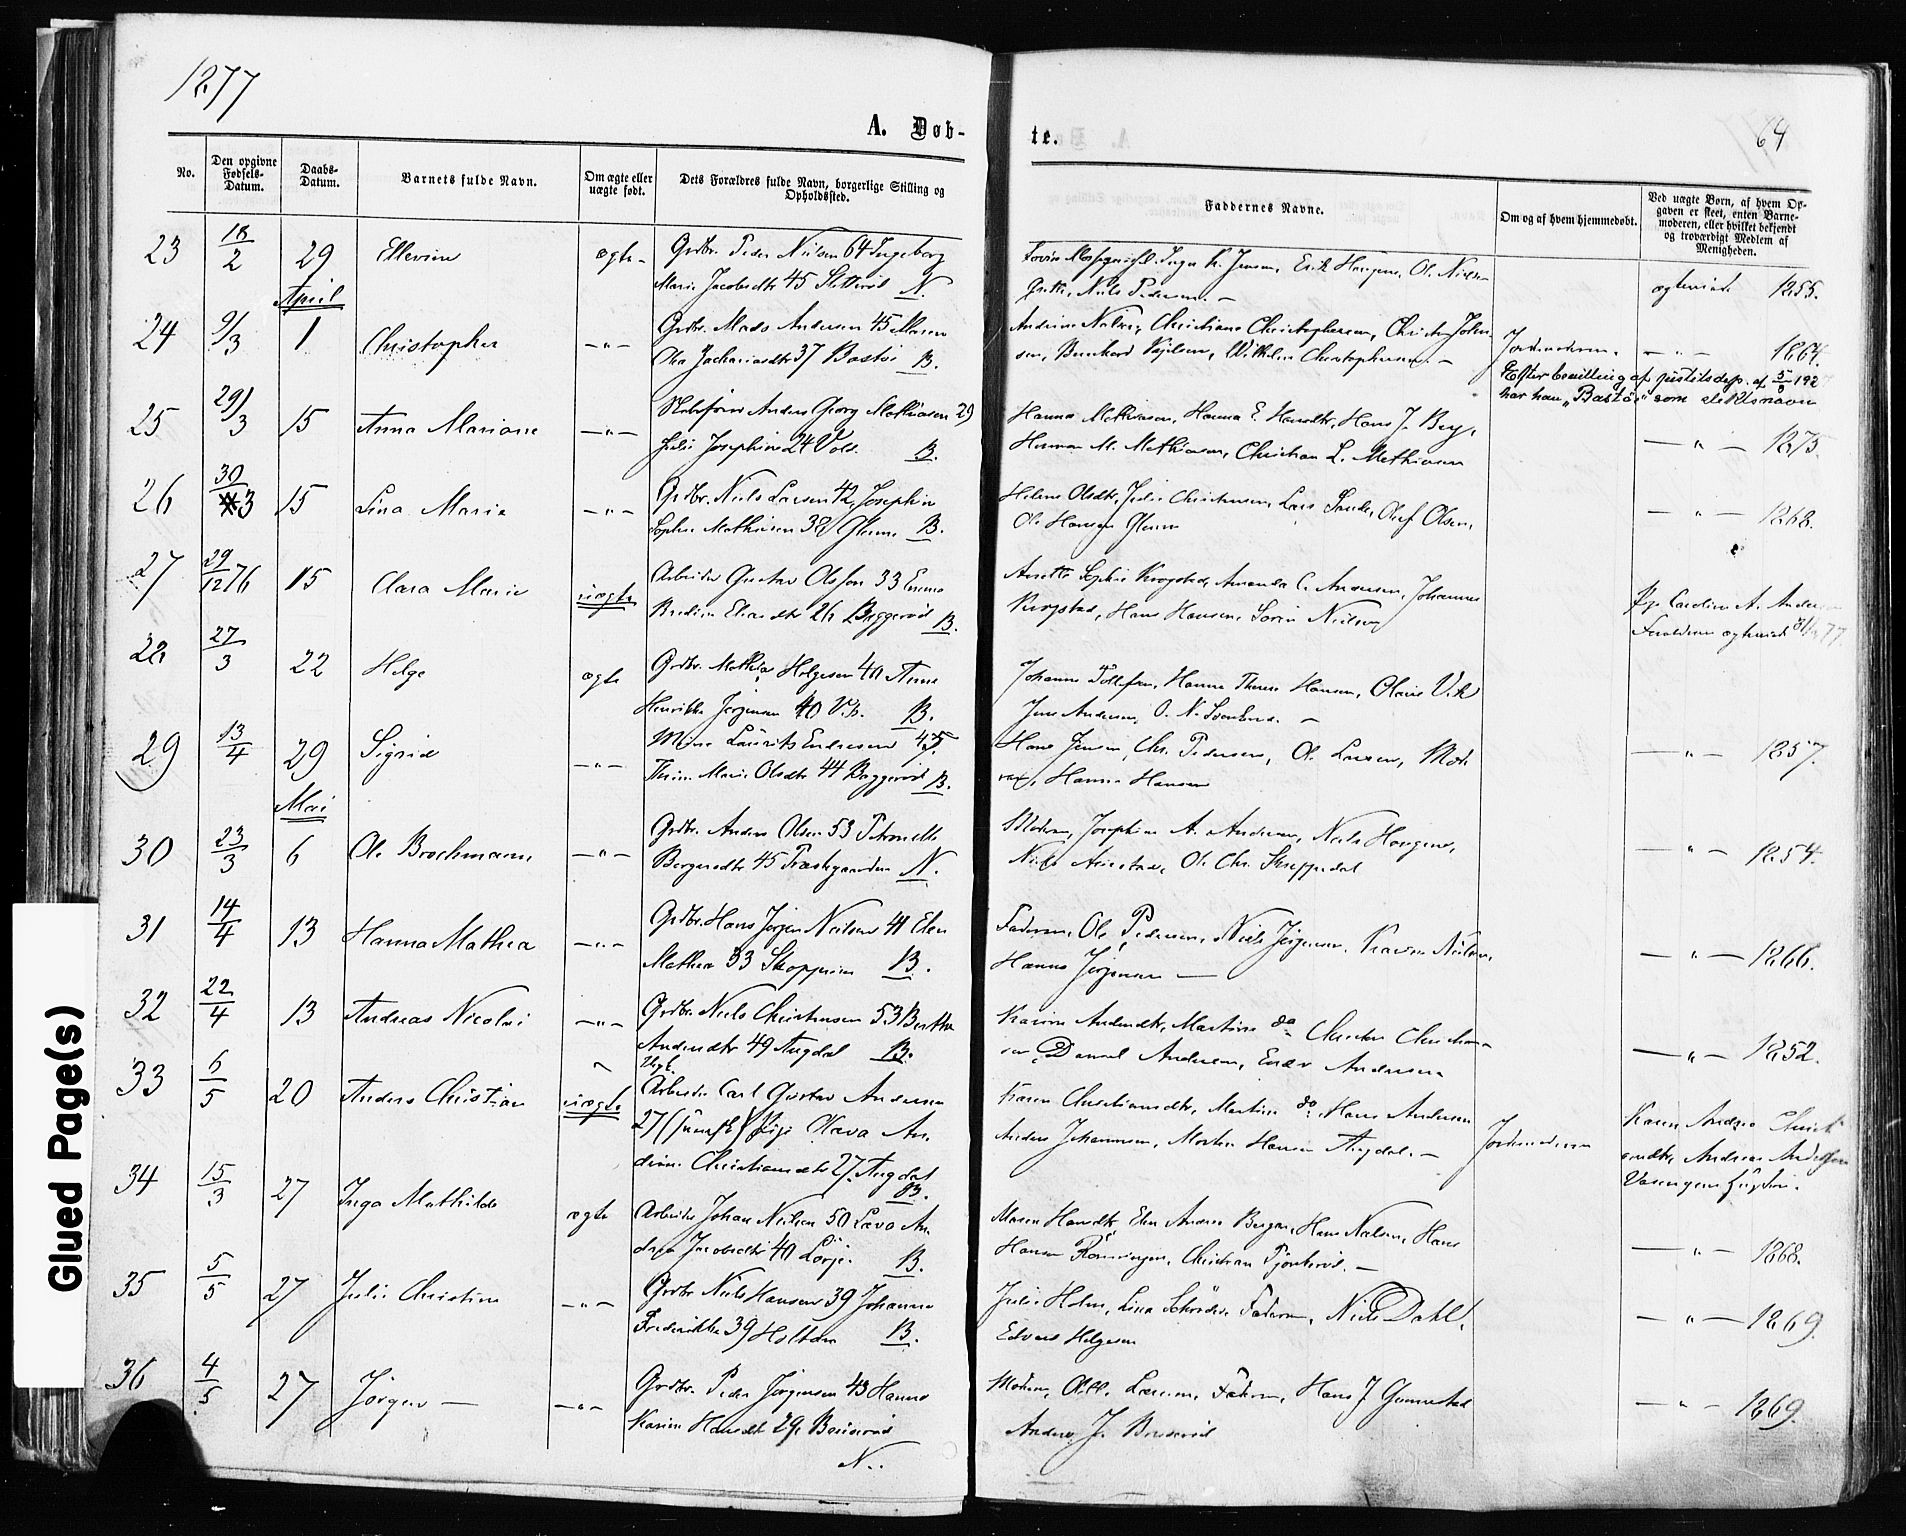 1877
64
A. Døb-
te.
No.
Den opgivne Fødsels-Datum.
Daabs-Datum.
Barnets fulde Navn.
Om ægte eller uægte født.
Dets Forældres fulde Navn, borgerlige Stilling og Opholdssted.
Faddernes Navne.
Om og af hvem hjemmedøbt.
Ved uægte Børn, af hvem Op-
gaven er skeet, enten Barne-
moderen, eller hvilket bekjendt
og troværdigt Medlem af
Menigheden.
23 18/2 29 Ellevine ægte Grdbr. Peder Nielsen 64 Ingeborg
Marie Jacobsdtr 45 N.
Inger K. Jensen, Erik Haugen, Ole Niels-
Niels Pedersen. —
ægteviede 1855.
April
24 9/3 1 Christopher — " — Grdbr. Mads Andersen 45 Maren
Zachariasdtr 37 Bastø B.
Christiane Christophersen, Christen John-
sen, Bernhard Wilhelm Christophersen. —
Jordmoderen. — " — 1864.
Efter bevilling af justitsdep. af 5/8 192
har han „Bastø" som slektsnavn
25 29/3 15 Anna Mariane — " — Anders Georg Mathiasen 29
Julie Josephine 24 Vold. B.
Hanna Mathiasen, Hanna E. Hansdtr, Hans J. Berg,
Herman M. Mathiasen, Christian L. Mathiasen
— " — 1875.
26 30/3 15 Lina Marie — " — Grdbr. Niels Larsen 42, Josephine
Sophie Mathisen 38 Glenne B.
Helene Olsdtr, Julie Christensen, Lars Sande, Oluf Olsen,
Ole Hansen Glenne
— " — 1868.
27 29/12 76 15 Clara Marie uægte Arbeider Gustav Olsson 33 Emma
Bredine Eliasdtr 26 Baggerød B.
Anette Sophie Krogstad, Amanda C. Andersen, Johannes
Krogstad, Hans Hansen, Søren Nielsen
Pige Caroline A. Andersen
Forældrene ægteviede 77.
28 27/3 22 Helge ægte Grdbr. Mathias Helgesen 40 Anne
Henrikke Jørgensen 40 Vik. B.
Johanne Tollefsen, Hanna Therese Hansen, Olaus Vik
Jens Andersen, O. N. —
29 13/4 29 Sigrid — " — Laurits Endresen 45
Marie Olsdtr 44 Baggerød B.
Hans Jensen, Chr. Pedersen, Ole Larsen,
Hanna Hansen
— " — 1857.
Mai
30 23/3 6 Ole Brochmann — " — Grdbr. Anders Olsen 53 Petronelle
Borgersdtr 45 Præstegaarden N.
Moderen, Josephine A. Andersen, Niels Haugen,
Niels Ole Chr. Skuppedal
— " — 1854.
31 14/4 13 Hanna Mathea — " — Grdbr. Hans Jørgen Nielsen 41 Elen
Mathea 33 Skoppum B.
Faderen, Ole Pedersen, Niels Jørgensen, Karen Nielsen,
Hanna Jørgensen —
— " — 1866.
32 22/4 13 Andreas Nicolai — " — Grdbr. Niels Christensen 53 Berthe
Andersdtr 49 Augdal B.
Karen Andersdtr, Martine do Christen Christian-
sen, Daniel Andersen, Einar Andersen
— " — 1852.
33 6/5 20 Anders Christian uægte Ugft. Arbeider Carl Gustav Andersen
27 (Pige Olava An-
drine Christiansdtr 27. Augdal B.
Karen Christiansdtr, Martine do, Hans Andersen
Anders Johannesen, Morten Hansen Augdal. —
Jordmoderen
Karen Andrea Christi-
ansdtr, Andreas Andersen
34 15/3 27 Inga Mathilde ægte Arbeider Johan Nielsen 50 Lava An-
drea Jacobsdtr 40 Lørje. B.
Maren Hansdtr, Elen Andrea Bergan, Hans Nielsen, Hans
Hansen Rønningen, Christian —
— " — 1868.
35 5/5 27 Julie Christine — " — Grdbr Niels Hansen 39 Johanne
Frederikke 39 Holtan B.
Julie Holm, Lina Schrøder, Faderen, Niels Dahl,
Edvard Helgesen
— " — 1869.
36 4/5 27 Jørgen — — " — Grdbr. Peder Jørgensen 43 Hanna
Karine Hansdtr 29, N.
Moderen, Larsen, Faderen, Hans J. Gunnestad
Anders J.
— " — 1869.
Glued Page(s)